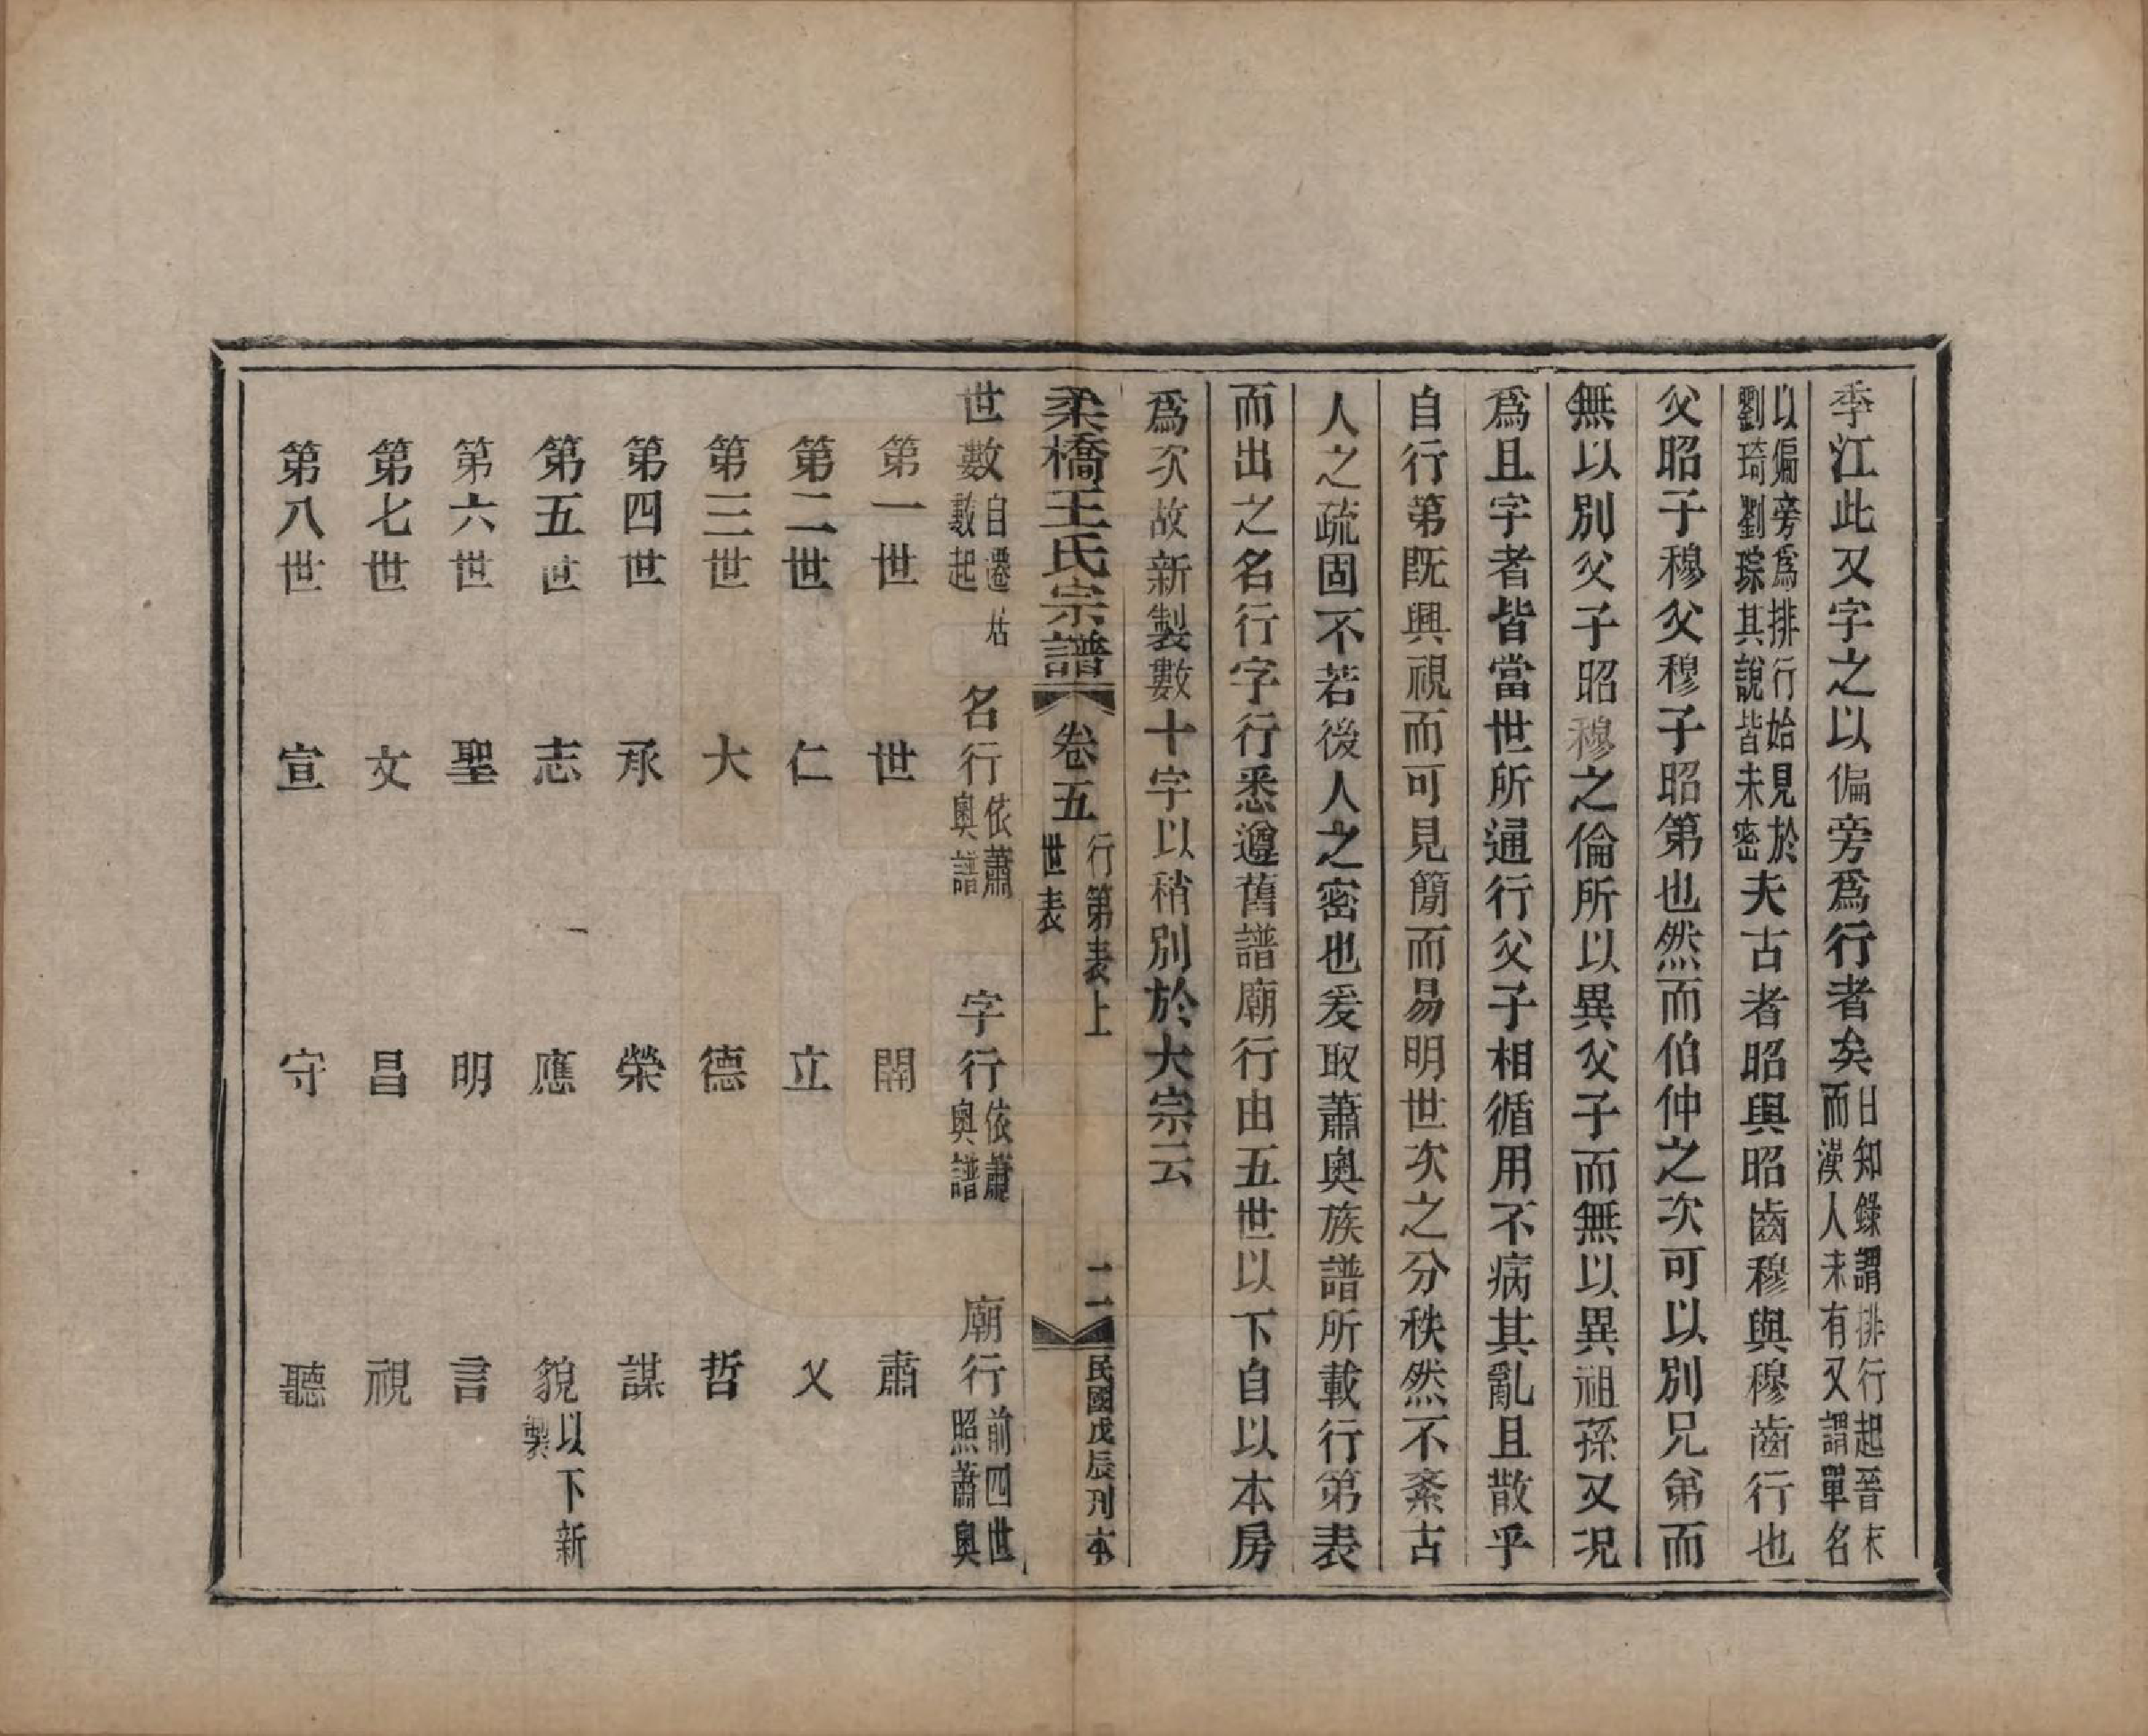 季江此又字之以偏旁爲行者矣日知錄謂排行起晉末而漢人未有又謂單名
以偏旁爲排行始見於劉琦劉琮其說皆未密夫古者昭與昭齒穆與穆齒行也
父昭子穆父穆子昭第也然而伯仲之次可以別兄弟而
無以別父子昭穆之倫所以異父子而無以異祖孫又況
爲且字者皆當世所通行父子相循用不病其亂且散乎
自行第既興視而可見簡而易明世次之分秩然不紊古
人之疏固不若後人之密也爰取蕭奧族譜所載行第表
而出之名行字行悉遵舊譜廟行由五世以下自以本房
爲次故新製數十字以稍別於大宗云
柔橋王氏宗譜 卷五 行第表上 世表 二 民國戊辰刊本
世數自遷姑數起 名行依蕭奧譜 字行依蕭奧譜 廟行前四世照蕭奧
第一世 世 開 肅
第二世 仁 立 乂
第三世 大 德 哲
第四世 承 榮 謀
第五世 志 應 貌以下新製
第六世 聖 明 言
第七世 文 昌 視
第八世 宣 守 聽